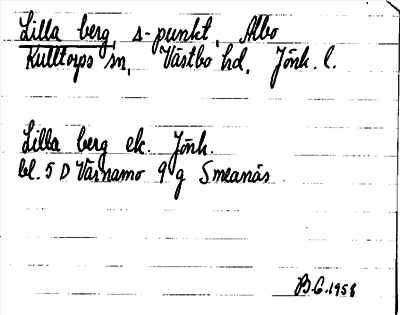 Lilla berg, s-punkt, Albo
Kulltorps sn, Västbo hd, Jönk. l.
Lilla berg ek. Jönk.
bl. 5 D Värnamo 9 g Smeanäs
B.G. 1958